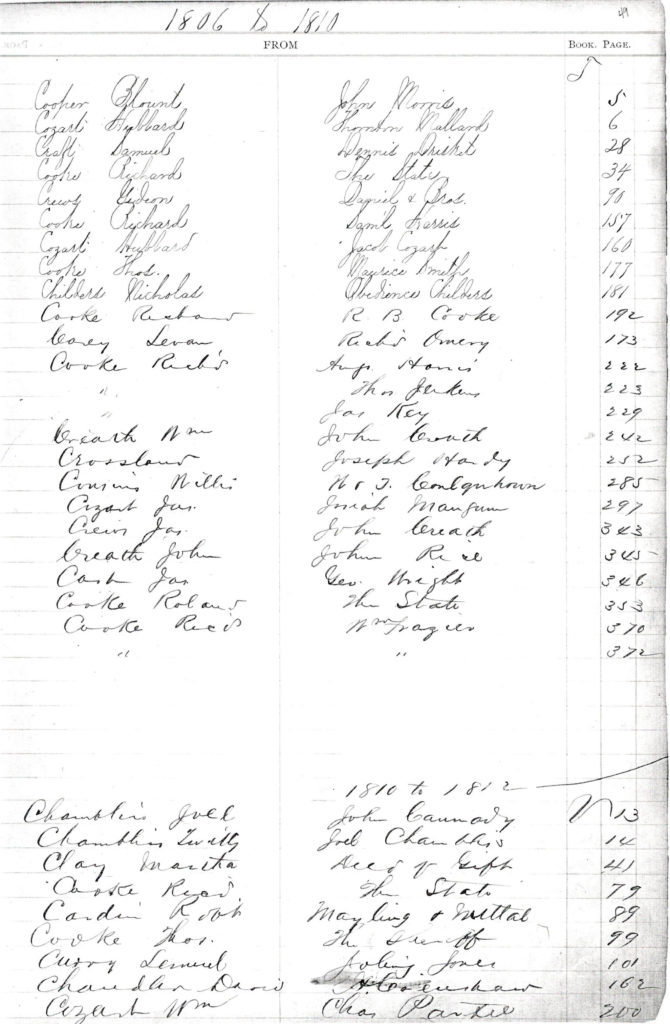 1806 to 1810
49
FROM BOOK. PAGE.
Cooper Blount John Morris 5
Cozart Hubbard Thornton Mallard 6
Craft Samuel Dennis 28
Cooke Richard The State 34
Crews Gideon Daniel & Bros. 90
Cooke Richard Saml Harris 157
Cozart Hubbard Jacob Cozart 160
Cooke Thos. Maurice Smith 177
Childers Nicholas Obedience Childers 181
Cooke Richard R. B. Cooke 192
Carey Levan Rich'd 173
Cooke Rich'd Aug. Harris 222
" Thos Jenkins 223
" Jas Key 229
Creath Wm John Creath 242
Crossland Joseph Hardy 252
Cousins Willis W & T. 285
Cozart Jas. Josiah Mangum 297
Crews Jas. John Creath 343
Creath John John Rice 345
Cash Jas Geo. Wright 346
Cooke Roland The State 353
Cooke Ric'd Wm Frazier 370
" " 372
1810 to 1812
Chamblis Joel John Cannady V 13
Chamblis Twitty Joel Chamblis 14
Clay Martha Deed of Gift 41
Cooke Ric'd The State 79
Cardin Rob't Mayling & Mittal 89
Cooke Thos. The Sheriff 99
Curry Lemuel Jones 101
Chandler David Crenshaw 162
Cozart Wm Chas Partee 200